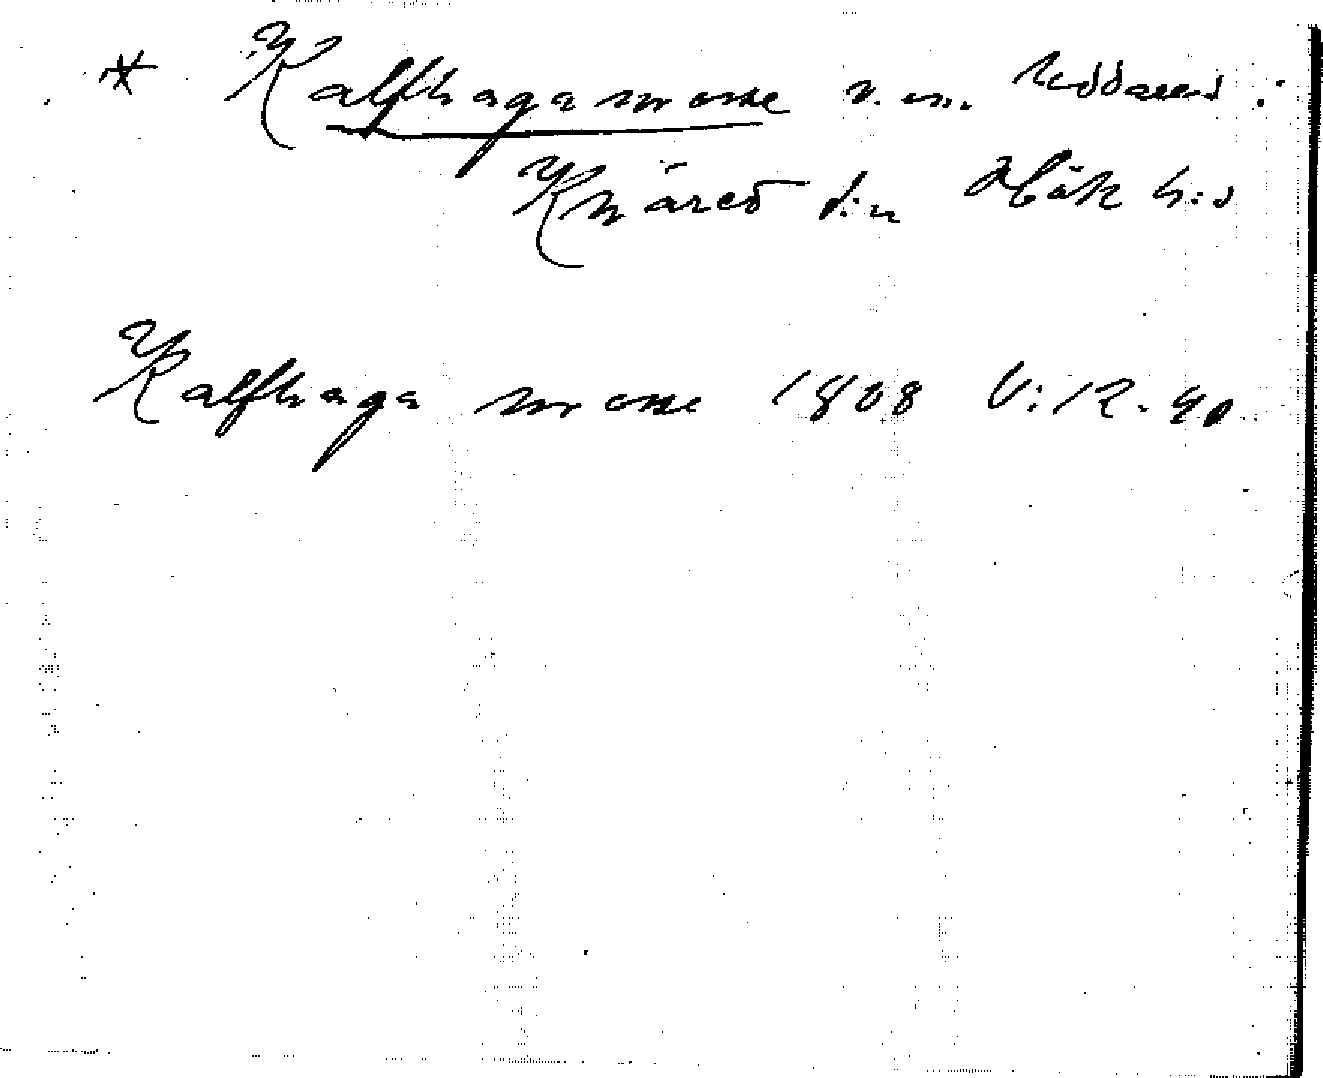 * Kalfhaga mosse n. om Uddared i
Knäred s:n Hök h:d
Kalfhaga mosse 1808 V:12.40